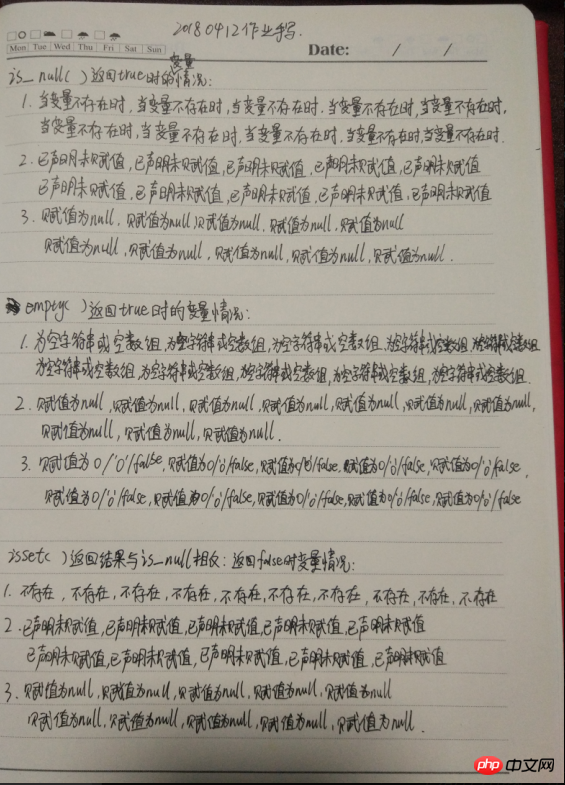 20180412作业手写.
Mon Tue Wed Thu Fri Sat Sun
Date: / /
变量
is_null( )返回true时的情况:
1. 当变量不存在时, 当变量不存在时, 当变量不存在时. 当变量不存在时, 当变量不存在时,
当变量不存在时, 当变量不存在时, 当变量不存在时. 当变量不存在时, 当变量不存在时.
2. 已声明未赋值, 已声明未赋值, 已声明未赋值, 已声明未赋值, 已声明未赋值
已声明未赋值, 已声明未赋值, 已声明未赋值, 已声明未赋值, 已声明未赋值
3. 赋值为null, 赋值为null, 赋值为null, 赋值为null, 赋值为null
赋值为null, 赋值为null, 赋值为null, 赋值为null, 赋值为null.
empty( )返回true时的变量情况:
1. 为空字符串或空数组, 为空字符串或空数组, 为空字符串或空数组, 为空字符串或空数组, 为空字符串或空数组
为空字符串或空数组, 为空字符串或空数组, 为空字符串或空数组, 为空字符串或空数组, 为空字符串或空数组.
2. 赋值为null, 赋值为null, 赋值为null, 赋值为null, 赋值为null, 赋值为null, 赋值为null,
赋值为null, 赋值为null, 赋值为null.
3. 赋值为0/'0'/false, 赋值为0/'0'/false, 赋值为0/'0'/false, 赋值为0/'0'/false, 赋值为0/'0'/false,
赋值为0/'0'/false, 赋值为0/'0'/false, 赋值为0/'0'/false, 赋值为0/'0'/false, 赋值为0/'0'/false
isset( )返回结果与is_null相反: 返回false时变量情况:
1. 不存在, 不存在, 不存在, 不存在, 不存在, 不存在, 不存在, 不存在, 不存在, 不存在
2. 已声明未赋值, 已声明未赋值, 已声明未赋值, 已声明未赋值, 已声明未赋值
已声明未赋值, 已声明未赋值, 已声明未赋值, 已声明未赋值, 已声明未赋值
3. 赋值为null, 赋值为null, 赋值为null, 赋值为null, 赋值为null
赋值为null, 赋值为null, 赋值为null, 赋值为null, 赋值为null.
php 中文网